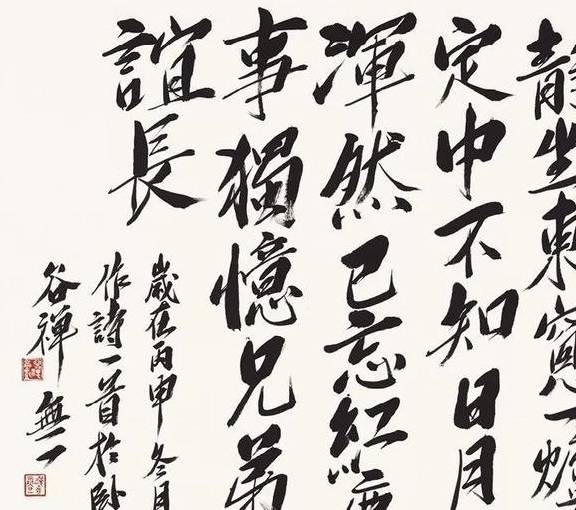 靜坐東窗一爐
定中不知日月
渾然已忘紅塵
事獨憶兄弟
誼長
歲在丙申冬月
作詩一首於臥
谷禪 無一